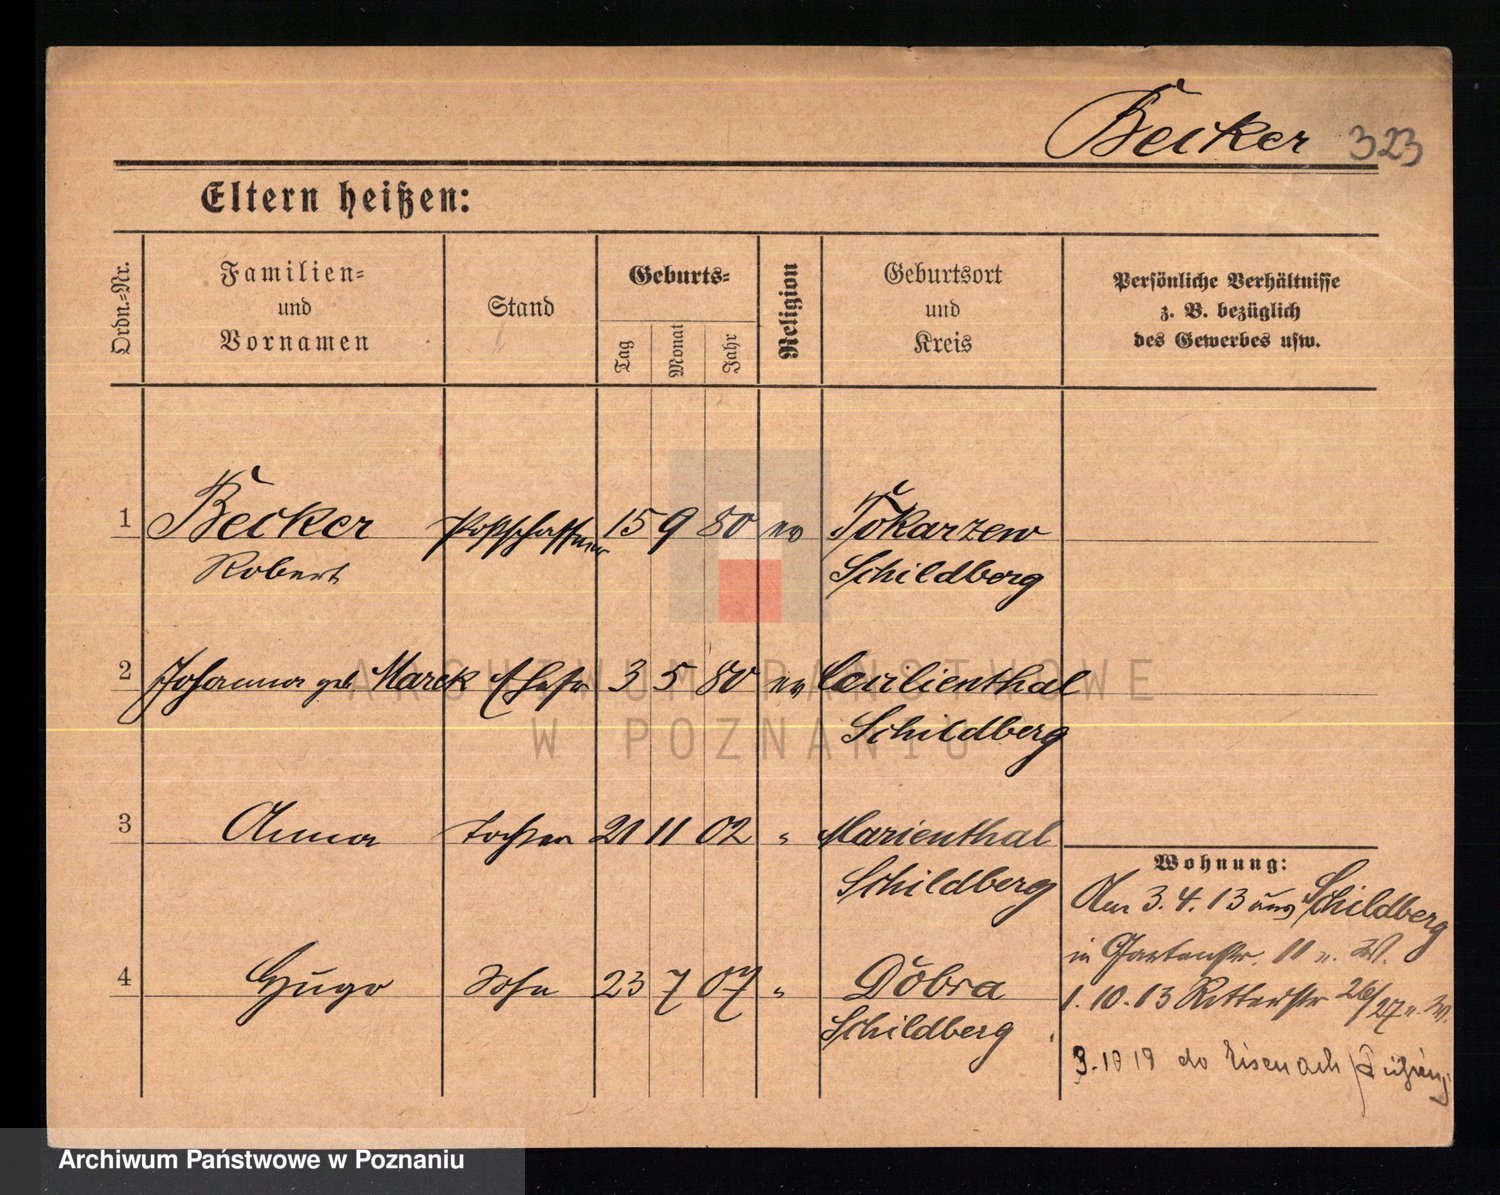 Becker 323
Eltern heißen:
Ordn.-Nr.
Familien-
und
Vornamen
Stand
Geburts-
Tag
Monat
Jahr
Religion
Geburtsort
und
Kreis
Persönliche Verhältnisse
z. B. bezüglich
des Gewerbes usw.
1 Becker Postschaffner 15 9 80 ev Tokarzew
Robert Schildberg
2 Johanna geb Marek Ehefr 3 5 80 ev Cecilienthal
Schildberg
3 Anna Tochter 21 11 02 " Marienthal
Schildberg
4 Hugo Sohn 23 7 07 " Dobra
Schildberg
Wohnung:
Am 3.4.13 aus Schildberg
in Gartenstr. 11 n. W.
1.10.13 Ritterstr 26/27 n. W.
3.10 19 do Eisenach
ARCHIWUM PAŃSTWOWE
W POZNANIU
Archiwum Państwowe w Poznaniu